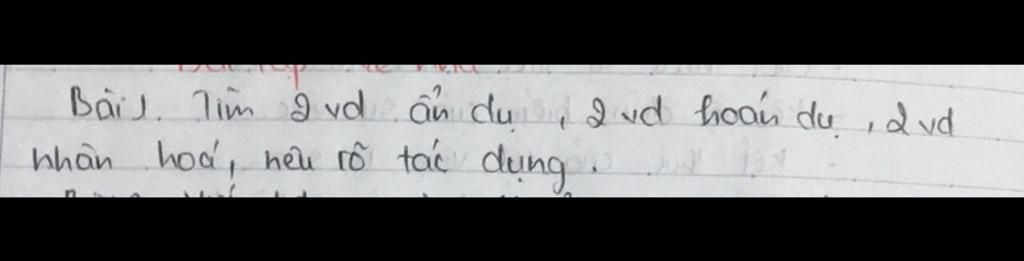 Bài 1. Tìm 2 vd ẩn dụ, 2 vd hoán dụ, 2 vd
nhân hoá, nêu rõ tác dụng.